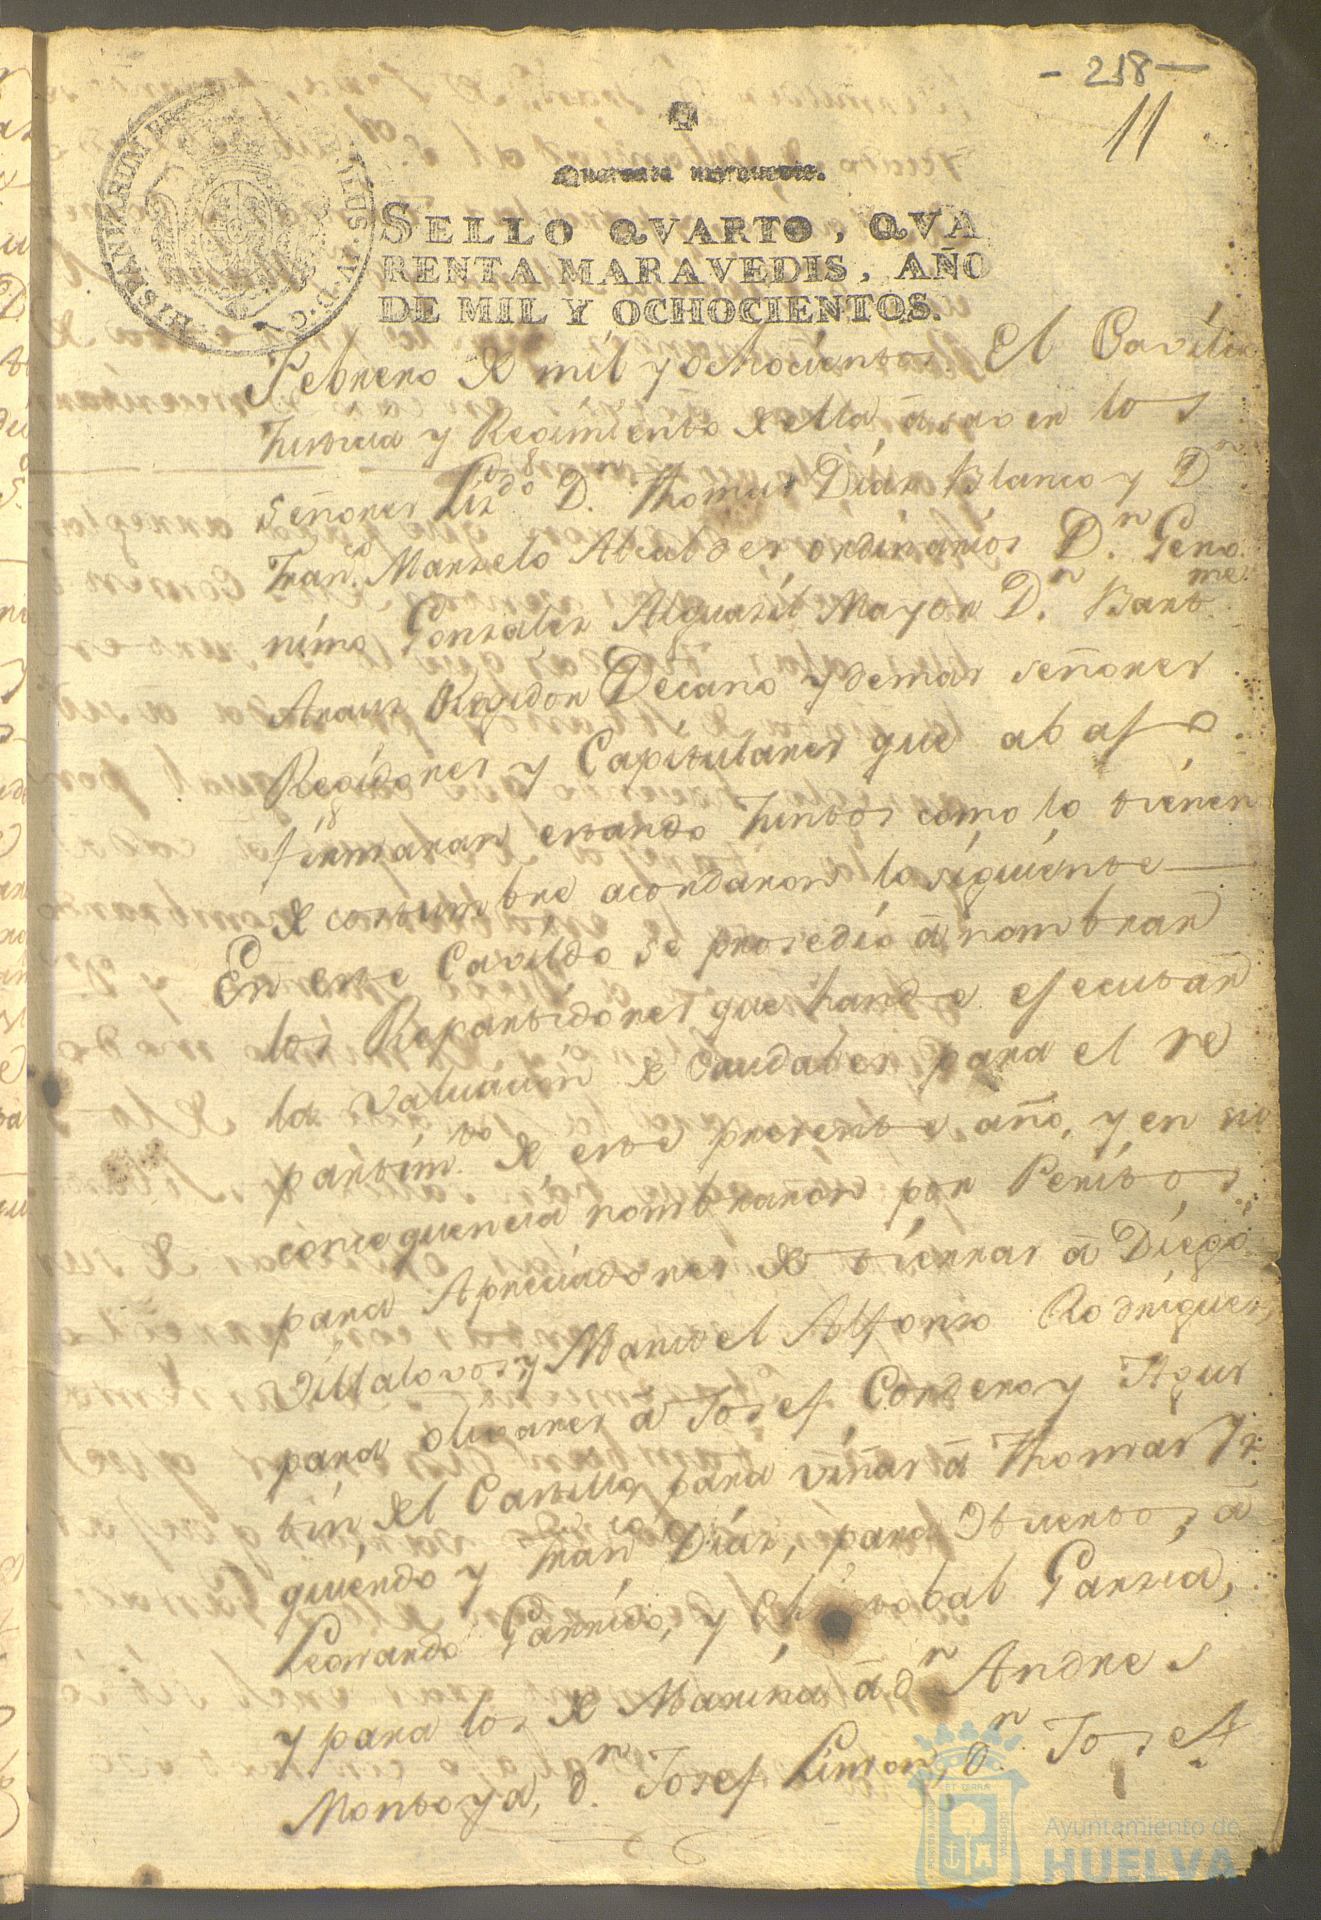 - 218 -
11
Quarenta maravedis.
SELLO QVARTO, QVA
RENTA MARAVEDIS, AÑO
DE MIL Y OCHOCIENTOS.
HISPANIARUM REX
Febrero de mil y ochocientos. El Cavildo
Justicia y Regimiento de ella, a saver los
Señores Lizdo. Dn. Thomas Diaz Blanco y Dn.
Franco. Marzelo Alcaldes ordinarios Dn. Gero
nimo Gonzalez Alguazil Mayor Dn. Bartme.
Arauz Regidor Decano y demas señores
Regidores y Capitulares que abaxo
firmaran estando Juntos como lo tienen
de costumbre acordaron lo siguiente
En este Cavildo se prosedio a nombrar
los Repartidores que han de efecutar
la valuacion de Caudales para el re
partimto. de este presente año, y en su
consequencia nombraron por Peritos
para Apreciadores de tierras a Diego
Villalovos, y Manuel Alfonso Rodriguez,
para olivares a Josef Cordero y Agus
tin del Castillo, para viñas a Thomas Iz
quierdo y Franco Diaz, para Huertos, a
Leonardo Garrido, y Christobal Garzia,
y para los de Marina a dn Andres
Montoya, dn. Josef Limon, dn. Josef
Ayuntamiento de
HUELVA